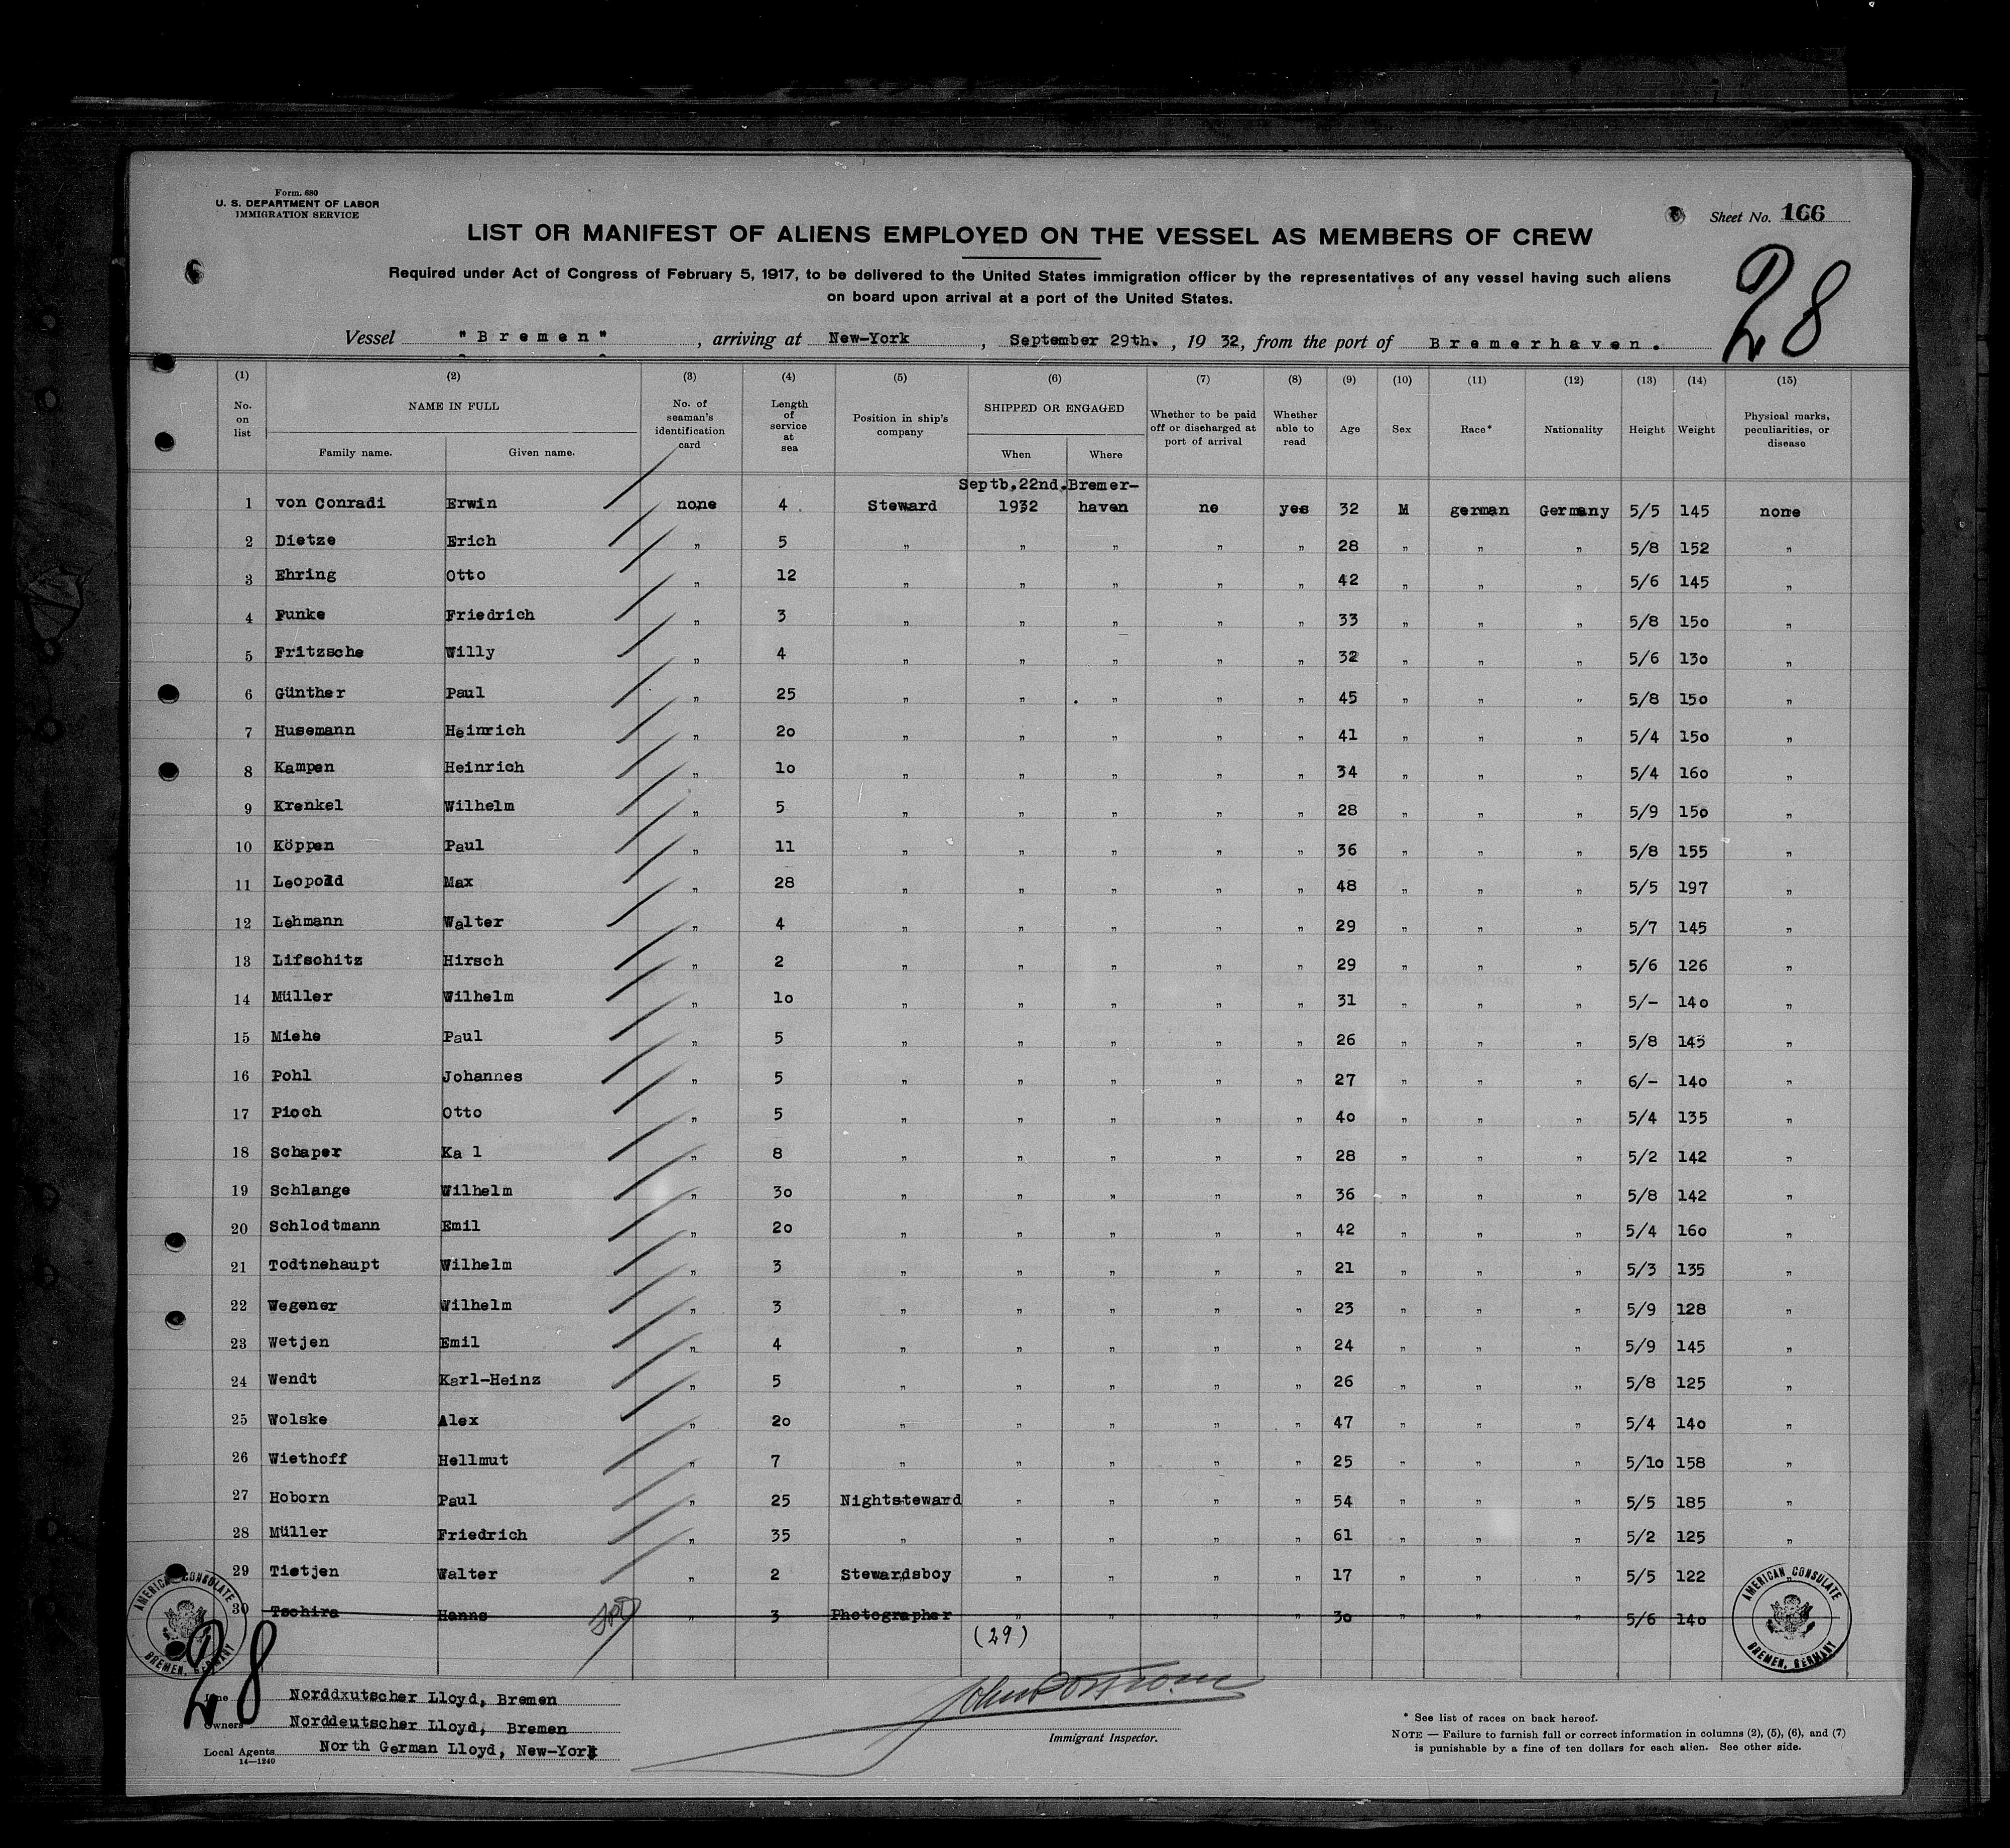 Form. 680
U. S. DEPARTMENT OF LABOR
IMMIGRATION SERVICE
Sheet No. 166
LIST OR MANIFEST OF ALIENS EMPLOYED ON THE VESSEL AS MEMBERS OF CREW
Required under Act of Congress of February 5, 1917, to be delivered to the United States immigration officer by the representatives of any vessel having such aliens
on board upon arrival at a port of the United States.
28
Vessel "Bremen", arriving at New-York, September 29th., 1932, from the port of Bremerhaven.
(1) (2) (3) (4) (5) (6) (7) (8) (9) (10) (11) (12) (13) (14) (15)
No. on list NAME IN FULL Family name. Given name. No. of seaman's identification card Length of service at sea Position in ship's company SHIPPED OR ENGAGED When Where Whether to be paid off or discharged at port of arrival Whether able to read Age Sex Race* Nationality Height Weight Physical marks, peculiarities, or disease
1 von Conradi Erwin none 4 Steward Septb.22nd. 1932 Bremer-haven no yes 32 M german Germany 5/5 145 none
2 Dietze Erich " 5 " " " " " 28 " " " 5/8 152 "
3 Ehring Otto " 12 " " " " " 42 " " " 5/6 145 "
4 Funke Friedrich " 3 " " " " " 33 " " " 5/8 150 "
5 Fritzsche Willy " 4 " " " " " 32 " " " 5/6 130 "
6 Günther Paul " 25 " " " " " 45 " " " 5/8 150 "
7 Husemann Heinrich " 20 " " " " " 41 " " " 5/4 150 "
8 Kampen Heinrich " 10 " " " " " 34 " " " 5/4 160 "
9 Krenkel Wilhelm " 5 " " " " " 28 " " " 5/9 150 "
10 Köppen Paul " 11 " " " " " 36 " " " 5/8 155 "
11 Leopold Max " 28 " " " " " 48 " " " 5/5 197 "
12 Lehmann Walter " 4 " " " " " 29 " " " 5/7 145 "
13 Lifschitz Hirsch " 2 " " " " " 29 " " " 5/6 126 "
14 Müller Wilhelm " 10 " " " " " 31 " " " 5/- 140 "
15 Miehe Paul " 5 " " " " " 26 " " " 5/8 145 "
16 Pohl Johannes " 5 " " " " " 27 " " " 6/- 140 "
17 Pioch Otto " 5 " " " " " 40 " " " 5/4 135 "
18 Schaper Ka l " 8 " " " " " 28 " " " 5/2 142 "
19 Schlange Wilhelm " 30 " " " " " 36 " " " 5/8 142 "
20 Schlodtmann Emil " 20 " " " " " 42 " " " 5/4 160 "
21 Todtnehaupt Wilhelm " 3 " " " " " 21 " " " 5/3 135 "
22 Wegener Wilhelm " 3 " " " " " 23 " " " 5/9 128 "
23 Wetjen Emil " 4 " " " " " 24 " " " 5/9 145 "
24 Wendt Karl-Heinz " 5 " " " " " 26 " " " 5/8 125 "
25 Wolske Alex " 20 " " " " " 47 " " " 5/4 140 "
26 Wiethoff Hellmut " 7 " " " " " 25 " " " 5/10 158 "
27 Hoborn Paul " 25 Nightsteward " " " " 54 " " " 5/5 185 "
28 Müller Friedrich " 35 " " " " " 61 " " " 5/2 125 "
29 Tietjen Walter " 2 Stewardsboy " " " " 17 " " " 5/5 122 "
30 Tschira Hanns " 3 Photographer " " " " 30 " " " 5/6 140
(29)
AMERICAN CONSULATE
BREMEN, GERMANY
AMERICAN CONSULATE
BREMEN, GERMANY
28
Line Norddxutscher Lloyd, Bremen
Owners Norddeutscher Lloyd, Bremen
Local Agents North German Lloyd, New-York
14—1240
Immigrant Inspector.
* See list of races on back hereof.
NOTE — Failure to furnish full or correct information in columns (2), (5), (6), and (7)
is punishable by a fine of ten dollars for each alien. See other side.